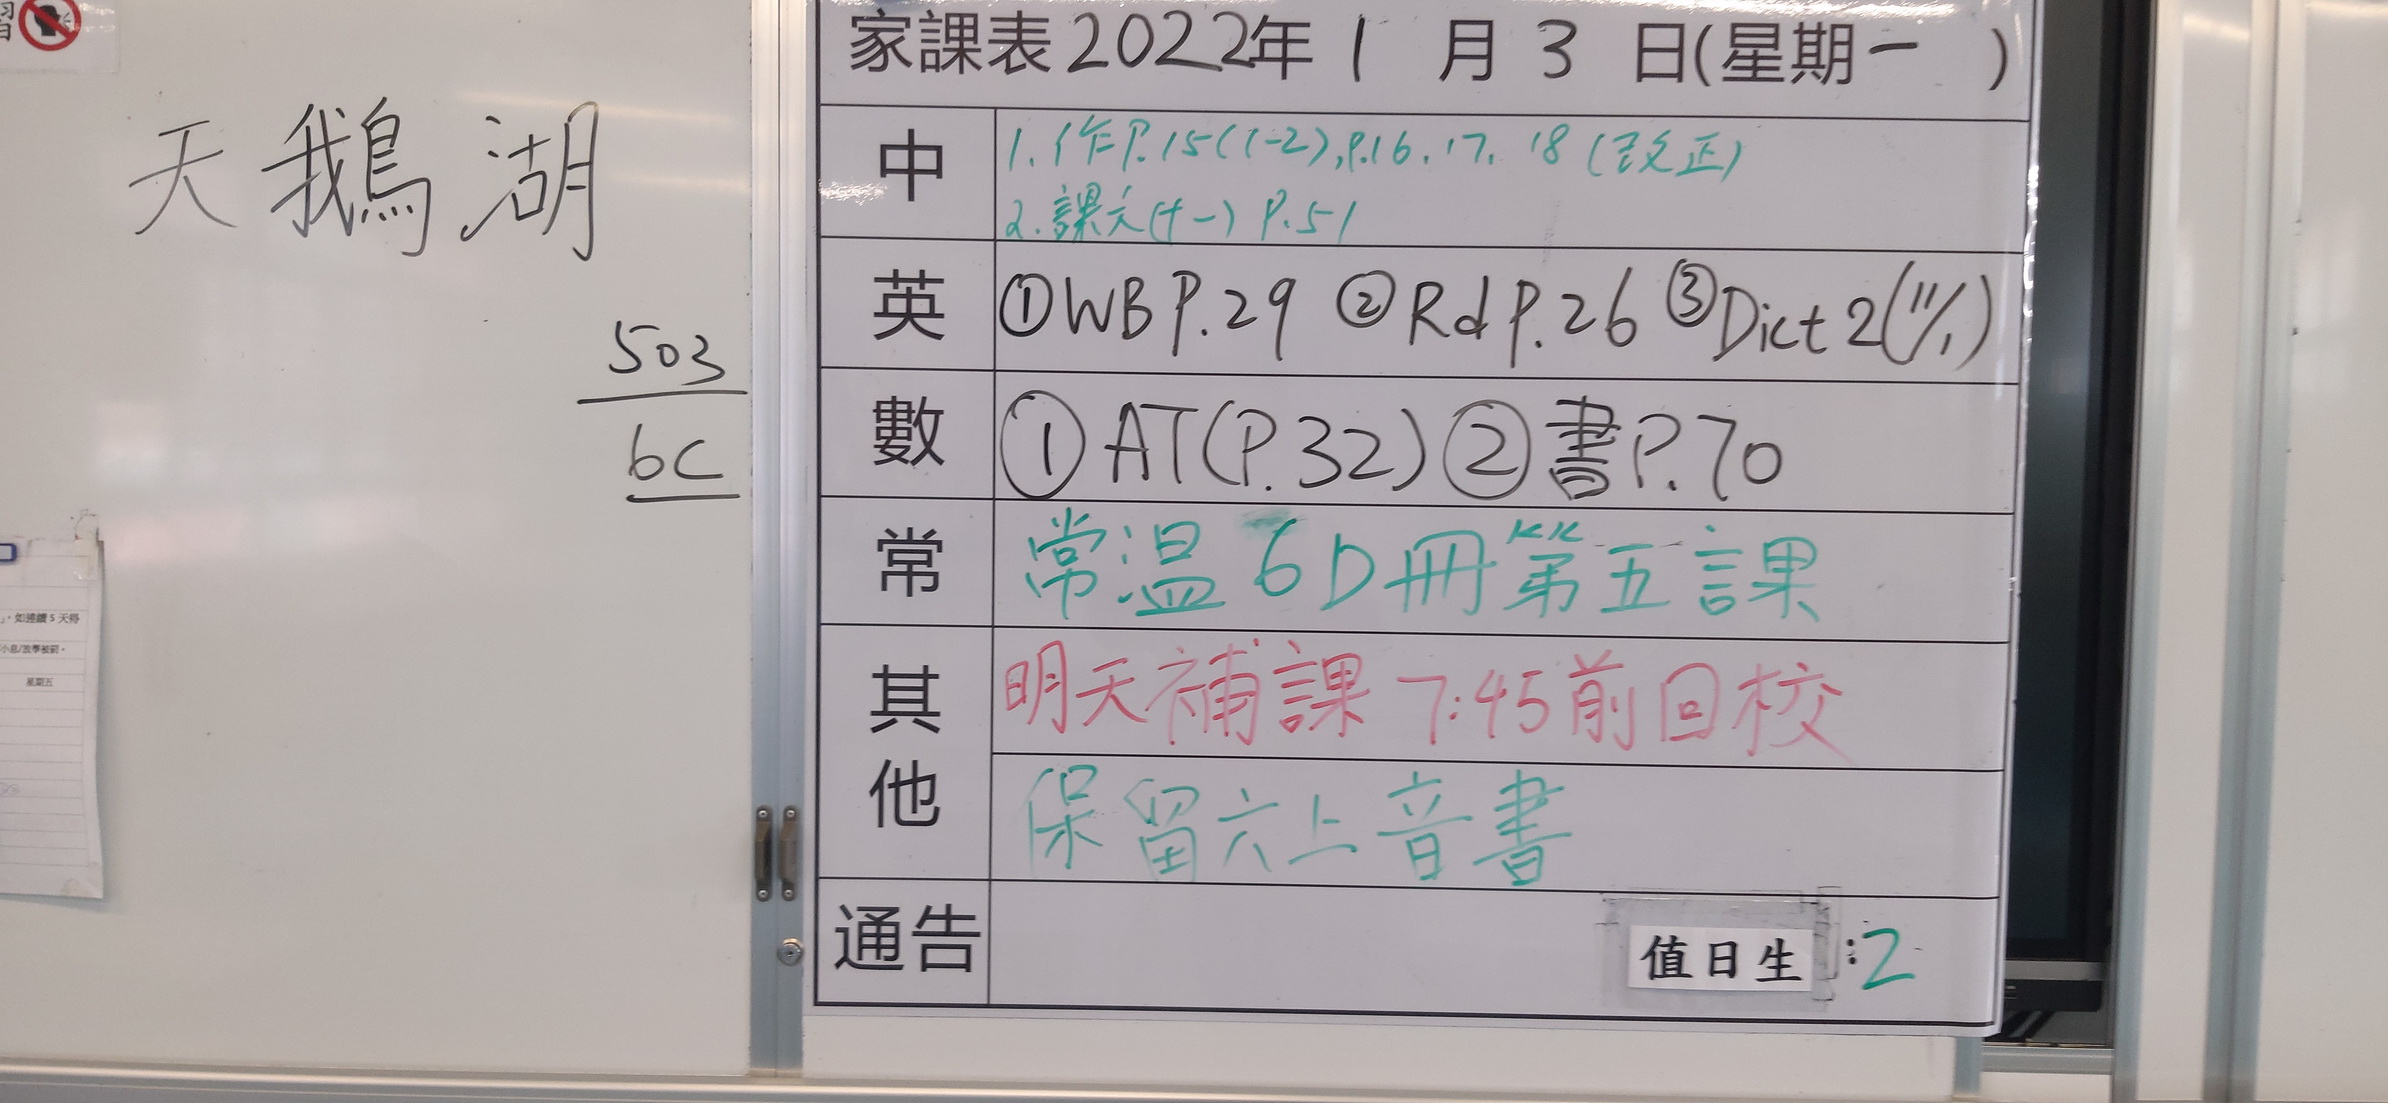 習
天鵝湖
503
6C
」,如連續5天得
小息/放學被罰。
星期五
家課表2022年1月3日(星期一 )
中
1.作P.15(1-2),P.16.17.18(改正)
2.課文(十一)P.51
英
①WB P.29 ②Rd P.26 ③Dict 2(11/1)
數
①AT(P.32)②書P.70
常
常溫6D冊第五課
其他
明天補課7:45前回校
保留六上音書
通告
值日生:2